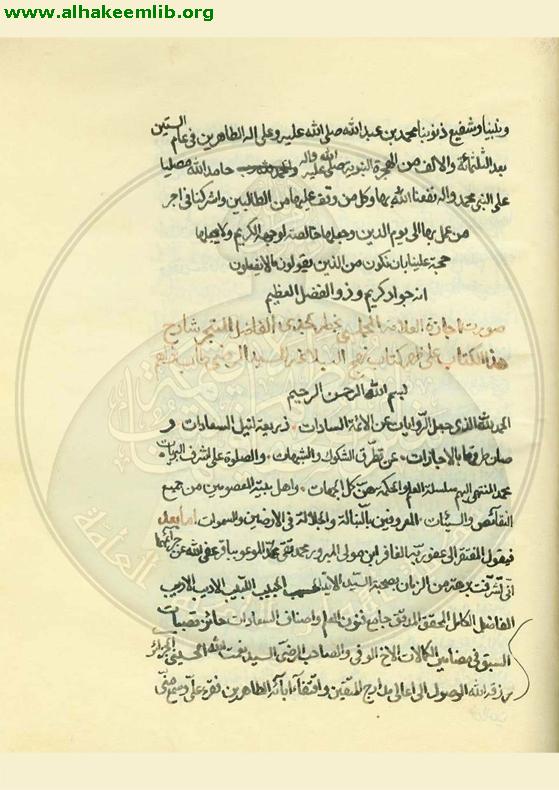 www.alhakeemlib.org
ونبينا وشفيع ذنوبنا محمد بن عبد الله صلى الله عليه وعلى اله الطاهرين في عام الستين
بعد الثلثمائة والالف من الهجرة النبوية صلى الله عليه واله والحمد لله حامد الله مصليا
على النبي محمد واله نفعنا الله بها وكل من وقف عليها من الطالبين واشركنا في اجر
من عمل بها الى يوم الدين وجعلها خالصة لوجهه الكريم ولا يجعلها
حجة علينا بان نكون من الذين يقولون مالا يفعلون
انه جواد كريم وذو الفضل العظيم
صورت اجازة العلامة المجلسي بخطه الفاضل المتبحر شارح
هذا الكتاب على ظهر كتاب نهج البلاغه السيد الرضي طاب
بسم الله الرحمن الرحيم
الحمد لله الذي جعل الروايات عن الائمة السادات ذريعة لنيل السعادات و
صان طرقها بالاجازات عن تطرق الشكوك والشبهات والصلوة على اشرف البريات
محمد المنتهى اليه سلسلة العلم والحكمة من كل الجهات واهل بيته المعصومين من جميع
النقائص والسيئات المعروفين بالنبالة والجلالة في الارضين والسموات اما بعد
فيقول المفتقر الى عفو ربه الغافر ابن مولى المبرور محمد تقي محمد المدعو بباقر عفى الله عن جرائمهما
اني تشرفت برهة من الزمان بصحبة السيد الايد الحسيب الحبيب اللبيب الاديب الاريب
الفاضل الكامل المحقق المدقق جامع فنون العلم واصناف السعادات حائز قصبات
السبق في مضامير الكمالات الاخ الوفي والصاحب الرضي السيد نعمت الله الحسيني الجزائري
رزقه الله الوصول الى اعالي مدارج المتقين واقتفاء اباءه الطاهرين فقرء علي وسمع مني